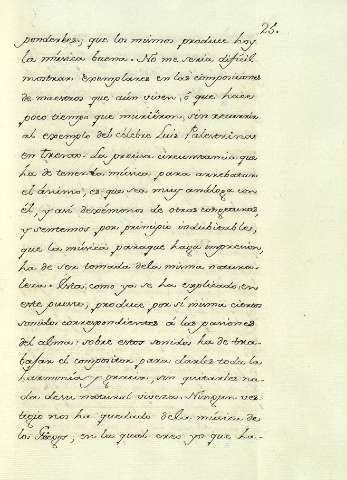 25.
ponderbes; que los mismos produce hoy
la música buena. No me seria dificil
mostrar exemplares en las composiciones
de maestros que aún viven, ó que hace
poco tiempo que muriéron, sin recurrir
al exemplo del célebre Luis Palestrina
en Trento. La precisa circunstancia que
ha de tener la música para arrebatar
el ánimo, es que sea muy análoga con
él; y asi dexémonos de otras conjeturas,
y sentemos por principio indubitable,
que la música paraque haga impresion,
ha de ser tomada dela misma natura-
leza. Esta, como ya se ha explicado en
este puesto, produce por sí misma ciertos
sonidos correspondientes á las pasiones
del alma: sobre estos sonidos ha de tra-
bajar el compositor para darles toda la
harmonía y gracia, sin quitarles na-
da desu natural viveza. Ningun ves-
tigio nos ha quedado dela música de
los Griegos; en la qual creo yo que ha-